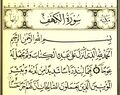 سُورَةُ الكَهْفِ
بِسْمِ اللَّهِ الرَّحْمَنِ الرَّحِيمِ
الْحَمْدُ لِلَّهِ الَّذِي أَنْزَلَ عَلَى عَبْدِهِ الْكِتَابَ وَلَمْ يَجْعَلْ لَهُ
عِوَجًا قَيِّمًا لِيُنْذِرَ بَأْسًا شَدِيدًا مِنْ لَدُنْهُ وَيُبَشِّرَ